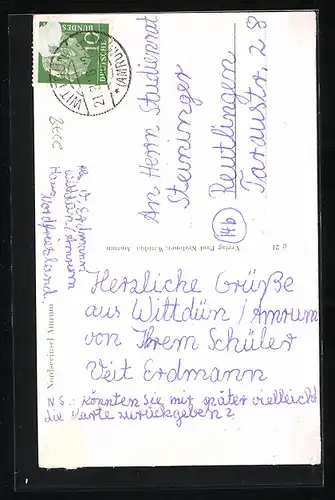 10
DEUTSCHE
BUNDES
WITTDÜN
21
(AMRUM)
An Herrn Studienrat
Steininger
(14b) Reutlingen
Taraustr. 28
Veit Erdmann
Wittdün / Amrum
Haus
Nordfriesland.
Nordseeinsel Amrum
Verlag Paul Wittdün, Amrum
g 21
Herzliche Grüße
aus Wittdün / Amrum
von Ihrem Schüler
Veit Erdmann
NS.: Könnten Sie mir später vielleicht
die Karte zurückgeben?